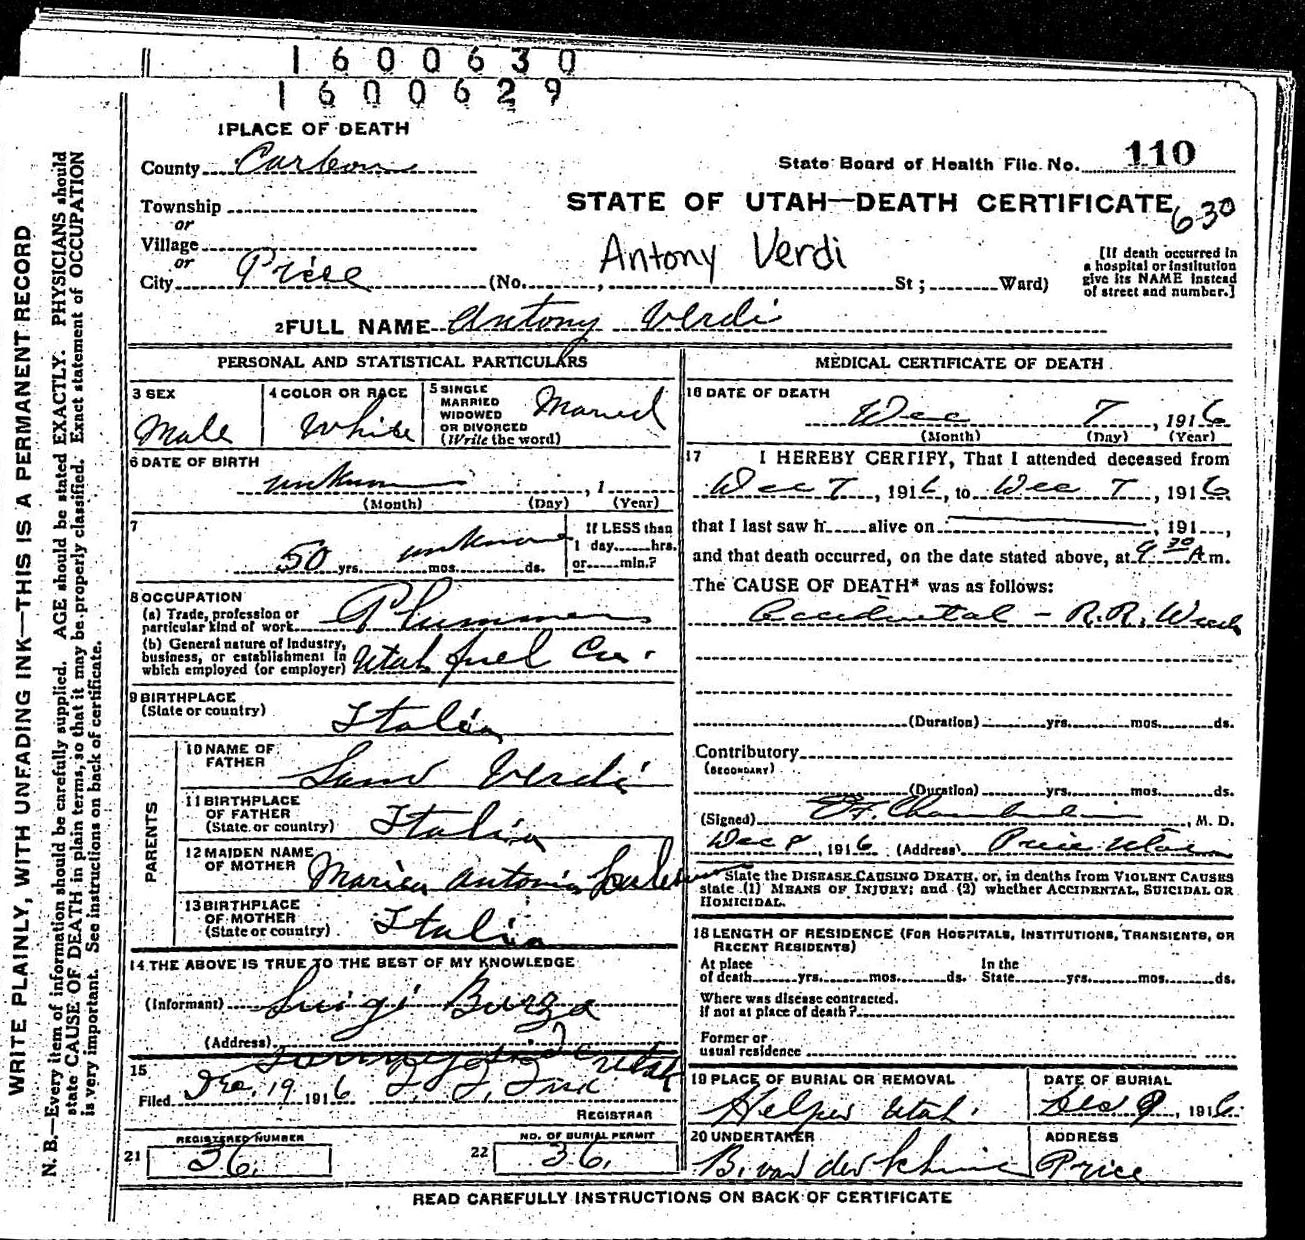 1600630
1600629
1 PLACE OF DEATH
County Carbon
State Board of Health File No. 110
Township
STATE OF UTAH—DEATH CERTIFICATE 630
or
Village
or
City Price (No. , St ; Ward)
Antony Verdi
[If death occurred in
a hospital or institution
give its NAME instead
of street and number.]
2 FULL NAME Antony Verdi
PERSONAL AND STATISTICAL PARTICULARS
3 SEX
Male
4 COLOR OR RACE
White
5 SINGLE
MARRIED
WIDOWED
OR DIVORCED
(Write the word)
Maried
6 DATE OF BIRTH
unknown , 1
(Month) (Day) (Year)
7
50 yrs. unknown mos. ds.
If LESS than
1 day hrs.
or min.?
8 OCCUPATION
(a) Trade, profession or
particular kind of work
(b) General nature of Industry,
business, or establishment in
which employed (or employer) Utah fuel Co.
9 BIRTHPLACE
(State or country)
Italia
PARENTS
10 NAME OF
FATHER
Verdi
11 BIRTHPLACE
OF FATHER
(State or country) Italia
12 MAIDEN NAME
OF MOTHER Maria Antonia
13 BIRTHPLACE
OF MOTHER
(State or country) Italia
14 THE ABOVE IS TRUE TO THE BEST OF MY KNOWLEDGE
(Informant) Luigi Burza
(Address) Sunnyside Utah
15
Filed Dec. 19 1916
REGISTRAR
21 REGISTERED NUMBER
36.
22 NO. OF BURIAL PERMIT
36.
MEDICAL CERTIFICATE OF DEATH
16 DATE OF DEATH
Dec 7 , 1916
(Month) (Day) (Year)
17 I HEREBY CERTIFY, That I attended deceased from
Dec 7 , 1916, to Dec 7 , 1916
that I last saw h alive on , 191 ,
and that death occurred, on the date stated above, at 9 30 A m.
The CAUSE OF DEATH* was as follows:
Accidental - R.R. Wreck
(Duration) yrs. mos. ds.
Contributory
(SECONDARY)
(Duration) yrs. mos. ds.
(Signed) , M. D.
Dec 8 , 1916 (Address) Price Utah
State the DISEASE CAUSING DEATH, or, in deaths from VIOLENT CAUSES
state (1) MEANS OF INJURY; and (2) whether ACCIDENTAL, SUICIDAL OR
HOMICIDAL.
18 LENGTH OF RESIDENCE (FOR HOSPITALS, INSTITUTIONS, TRANSIENTS, OR
RECENT RESIDENTS)
At place In the
of death yrs. mos. ds. State yrs. mos. ds.
Where was disease contracted.
If not at place of death?
Former or
usual residence
19 PLACE OF BURIAL OR REMOVAL
Helper Utah.
DATE OF BURIAL
Dec 9 , 1916
20 UNDERTAKER
ADDRESS
Price
READ CAREFULLY INSTRUCTIONS ON BACK OF CERTIFICATE
WRITE PLAINLY, WITH UNFADING INK—THIS IS A PERMANENT RECORD
N. B.—Every item of information should be carefully supplied. AGE should be stated EXACTLY. PHYSICIANS should
state CAUSE OF DEATH in plain terms, so that it may be properly classified. Exact statement of OCCUPATION
is very important. See instructions on back of certificate.